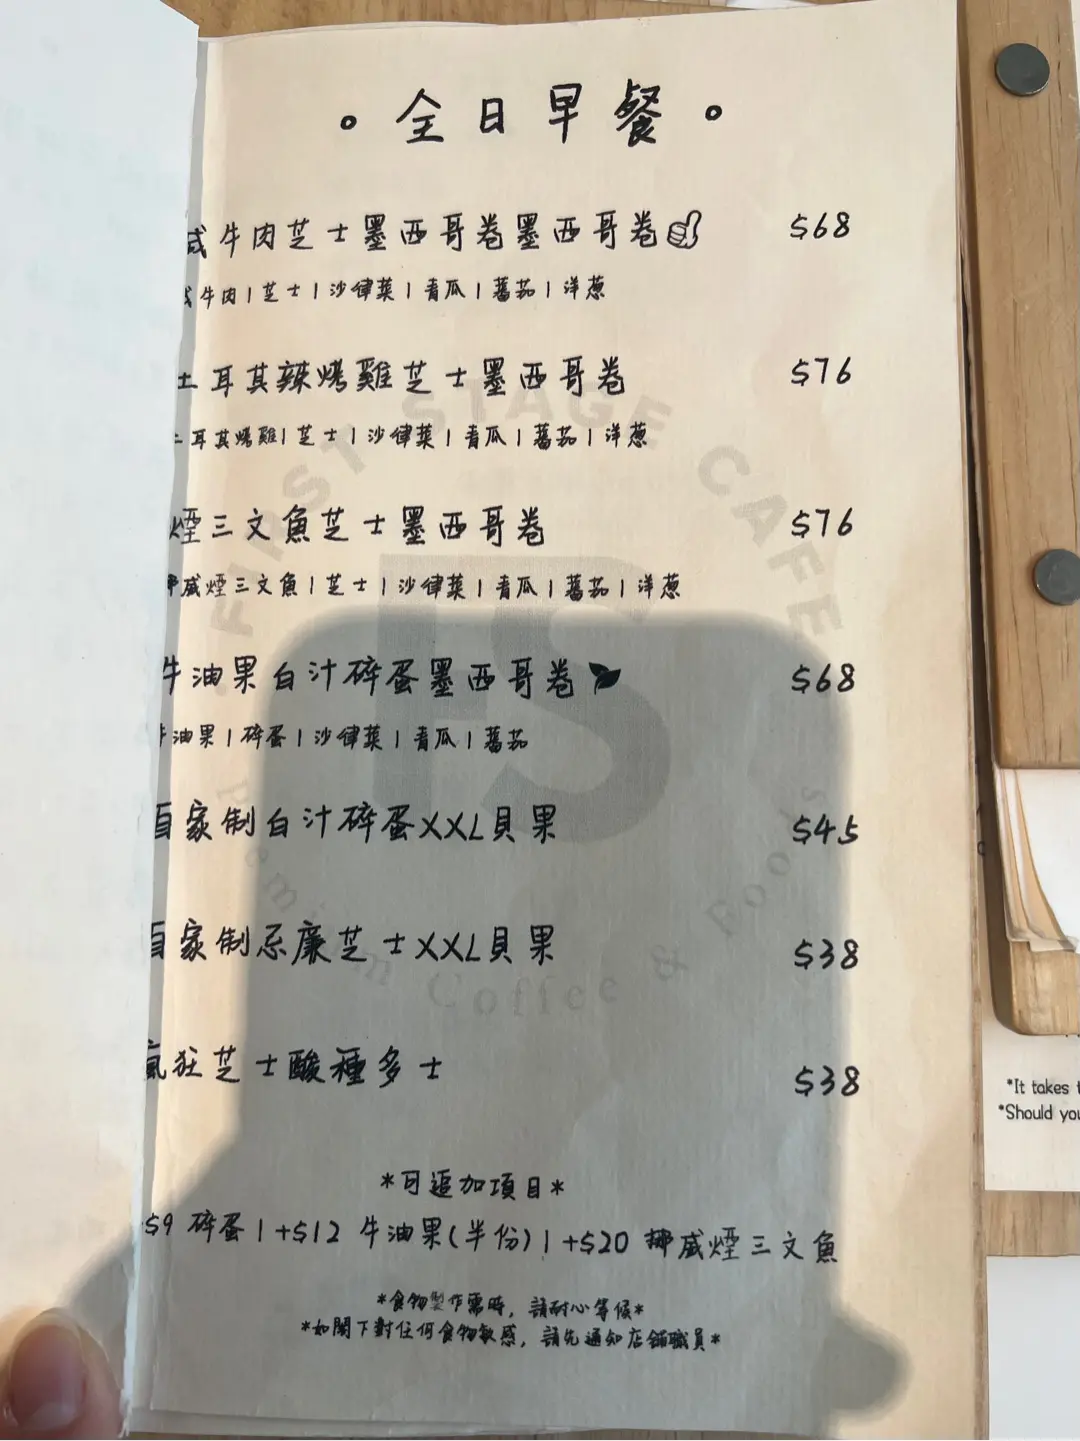 。全日早餐。
咸牛肉芝士墨西哥卷墨西哥卷 $68
牛肉 | 芝士 | 沙律菜 | 青瓜 | 蕃茄 | 洋葱
土耳其辣烤雞芝士墨西哥卷 $76
土耳其烤雞 | 芝士 | 沙律菜 | 青瓜 | 蕃茄 | 洋葱
煙三文魚芝士墨西哥卷 $76
挪威煙三文魚 | 芝士 | 沙律菜 | 青瓜 | 蕃茄 | 洋葱
牛油果白汁碎蛋墨西哥卷 $68
牛油果 | 碎蛋 | 沙律菜 | 青瓜 | 蕃茄
自家制白汁碎蛋XXL貝果 $45
自家制忌廉芝士XXL貝果 $38
瘋狂芝士酸種多士 $38
*可追加項目*
$9 碎蛋 | +$12 牛油果(半份) | +$20 挪威煙三文魚
*食物製作需時，請耐心等候*
*如閣下對任何食物敏感，請先通知店舖職員*
FIRST STAGE CAFE
FS
Premium Coffee & Food
*It takes
*Should you